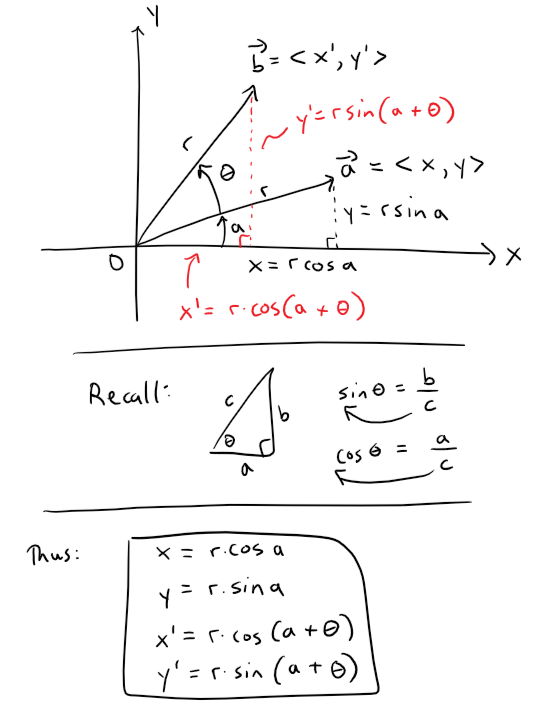 Y
b⃗ = < x', y' >
y' = r sin(a + θ)
r
θ
r
a⃗ = < x, y >
a
y = r sin a
O
x = r cos a
X
x' = r·cos(a + θ)
Recall:
c
b
θ
a
sin θ = b/c
cos θ = a/c
Thus:
x = r·cos a
y = r·sin a
x' = r·cos (a + θ)
y' = r·sin (a + θ)